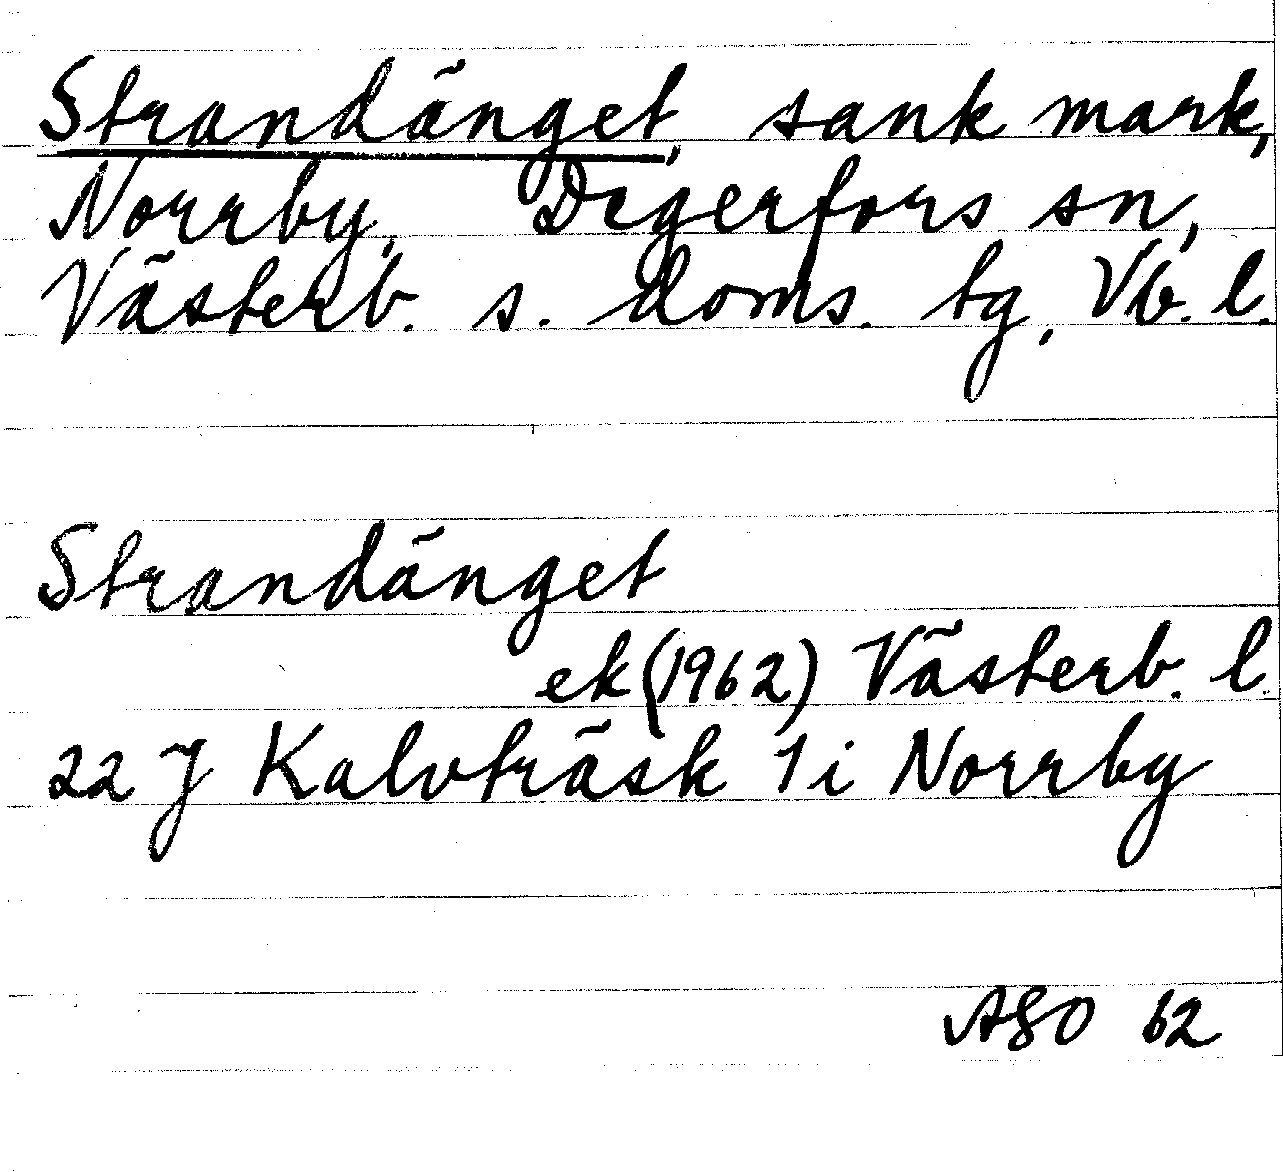 Strandänget, sank mark,
Norrby, Degerfors sn,
Västerb. s. doms. tg, Vb. l.
Strandänget
ek (1962) Västerb. l.
22 J Kalvträsk 1 i Norrby
62